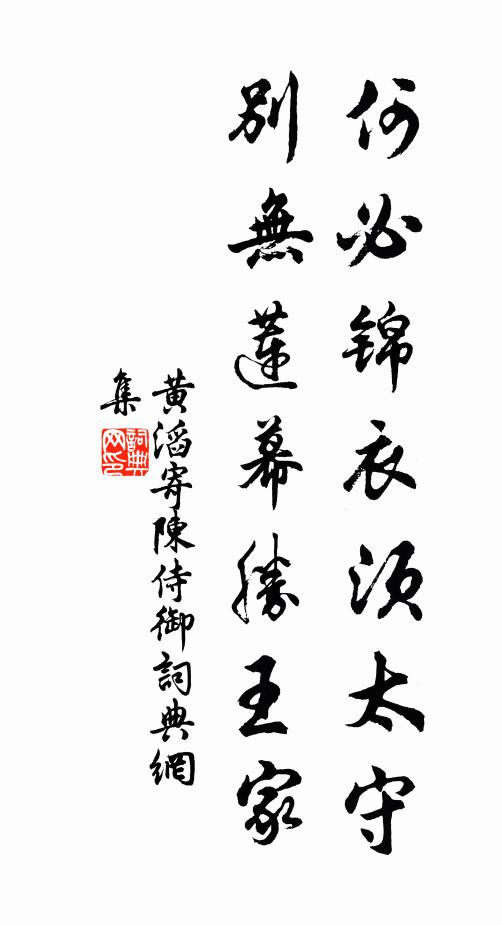 何必锦衣须太守
別無蓮幕勝王家
黄滔寄陳侍御詞典網
集
詞典
网印